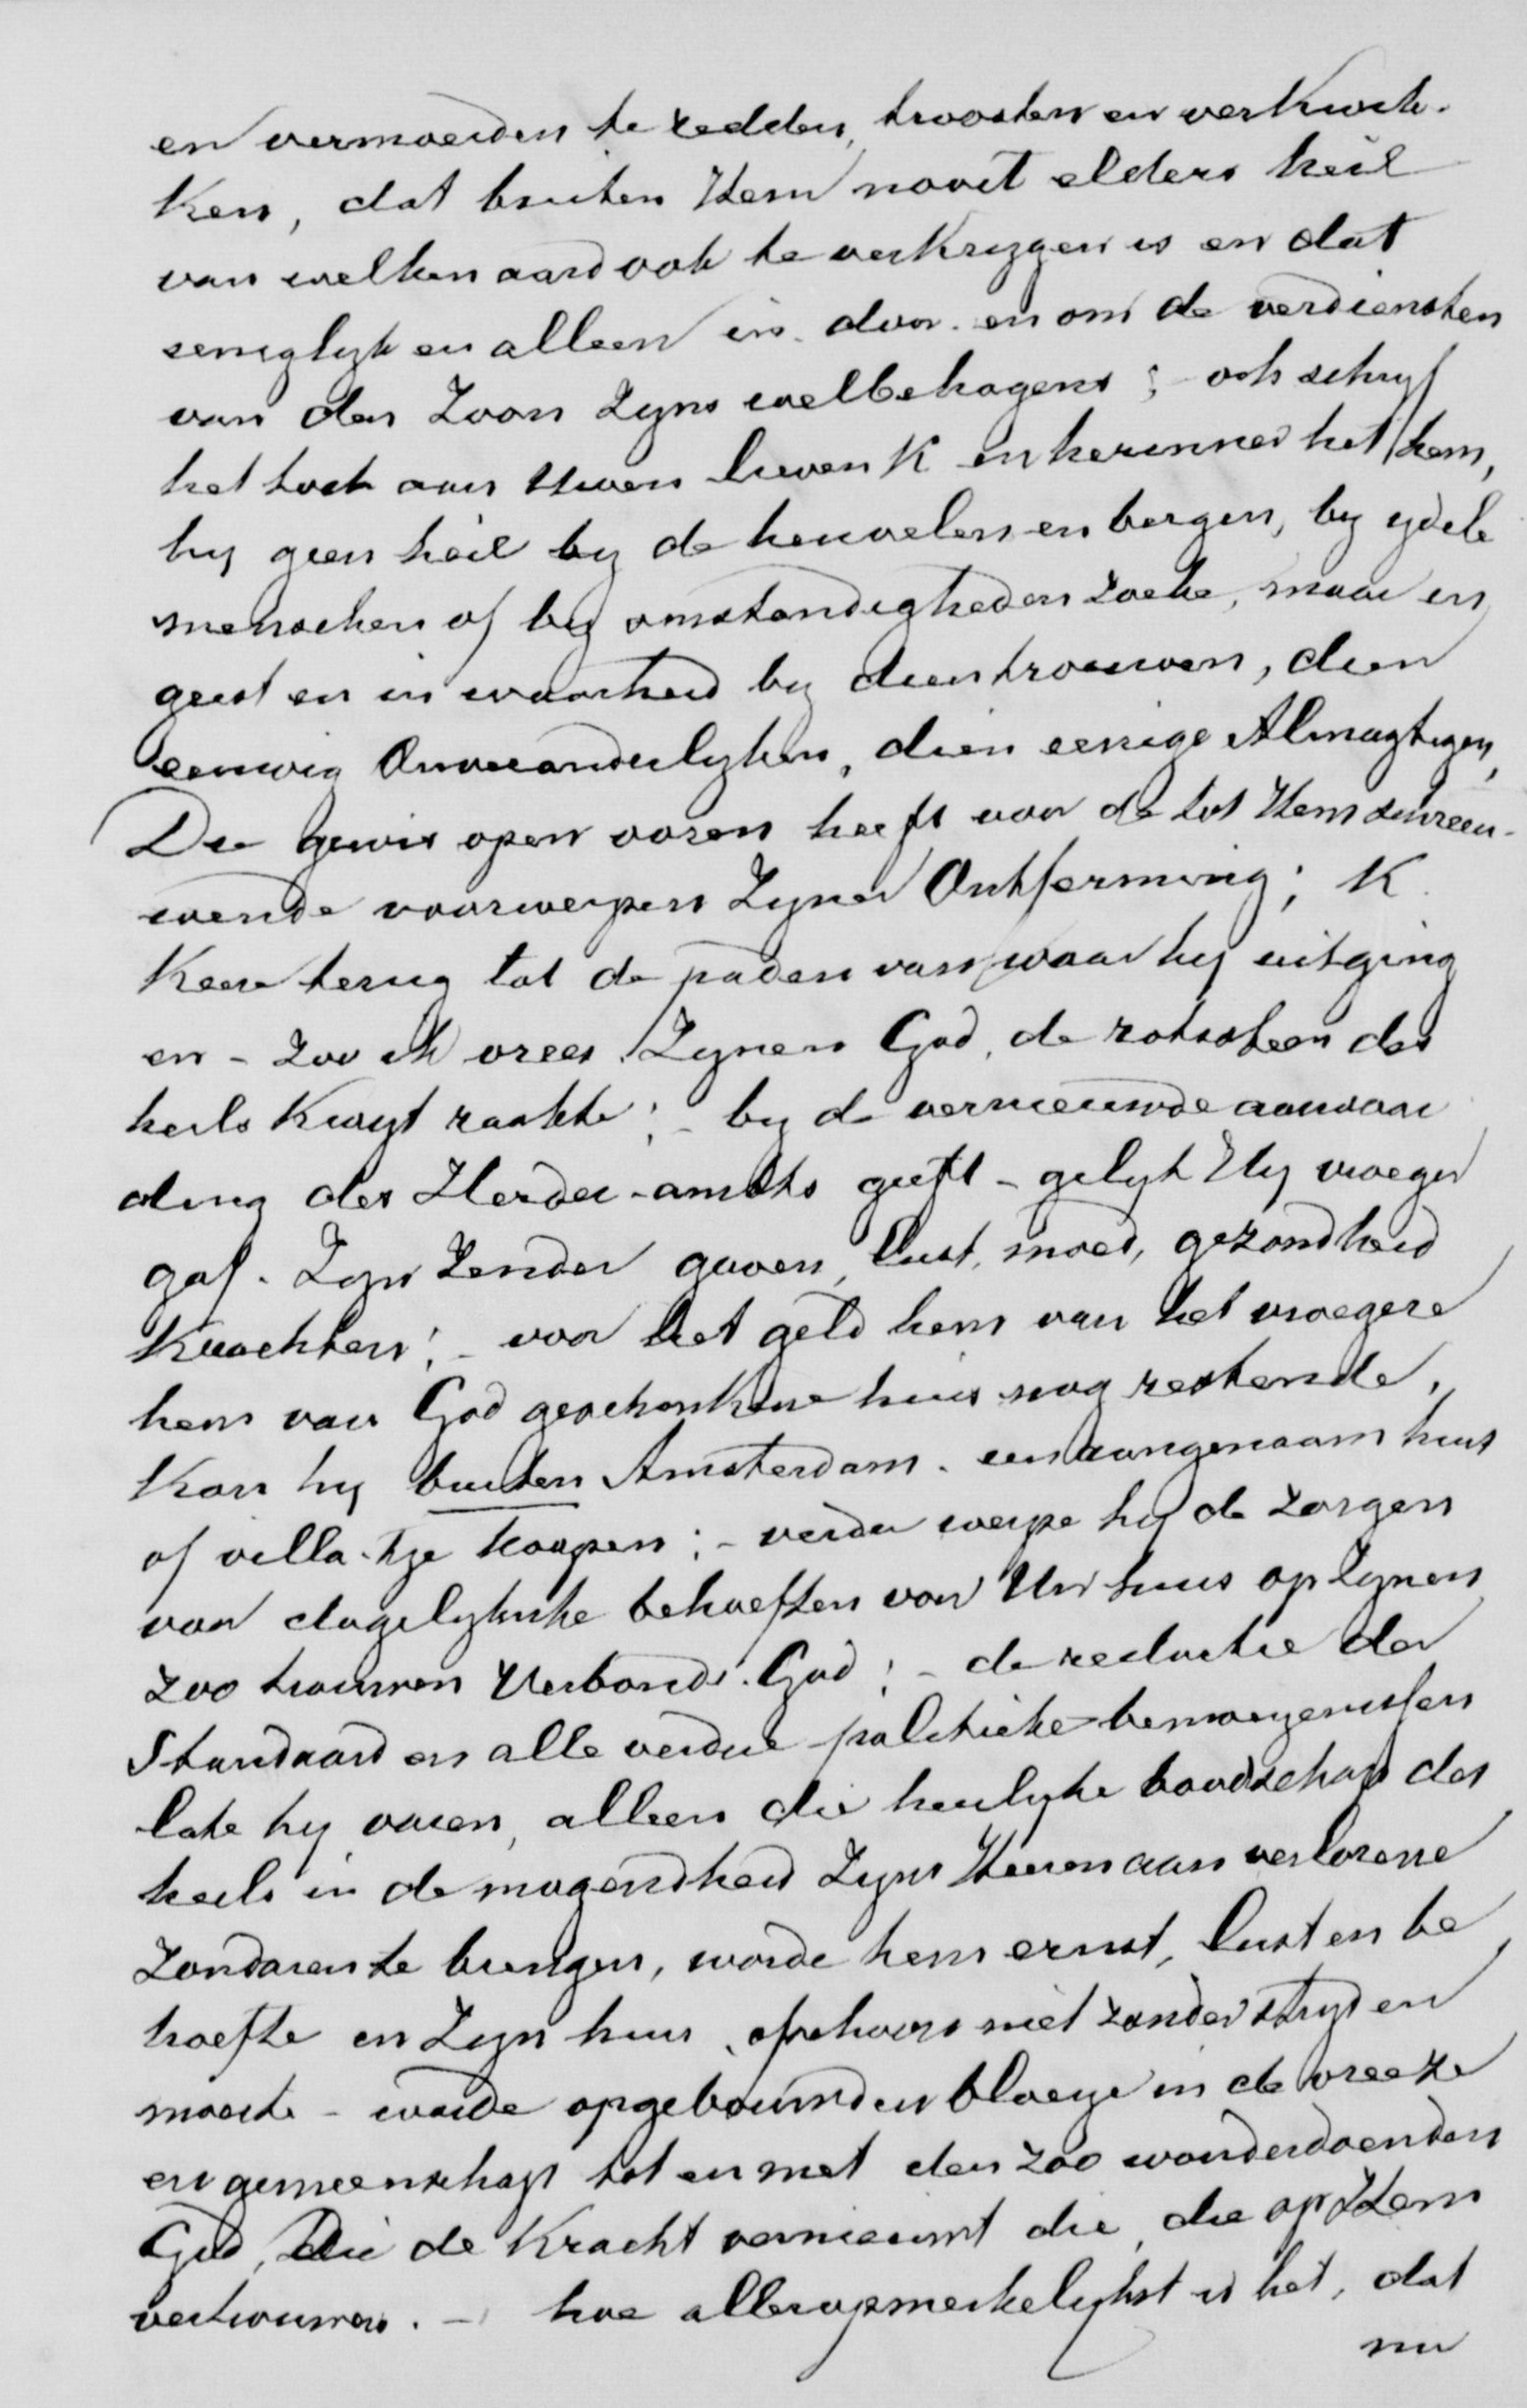 en vermoeiden te redden, troosten en verkwik-
ken, dat buiten Hem nooit elders heil
van welken aard ook te verkrygen is en dat
eeniglyk en alleen in, door en om de verdiensten
van den Zoon Zyns welbehagens; - och schryf
het toch aan Uwen lieven K en herinner het hem,
hy geen heil by de heuvelen en bergen, by ydele
menschen of by omstandigheden zoeke, maar in
geest en in waarheid by dien trouwen, dien
eeuwig Onveranderlyken, dien eenige Almagtigen,
Die gewis open ooren heeft voor de tot Hem schreeu-
wende voorwerpen Zyner Ontferming; K.
keere terug tot de paden van waar hy uitging
en - zoo ik vrees Zynen God, de rotssteen des
heils kwyt raakte; - by de vernieuwde aanvaar
ding des Herder-ambts geeft - gelyk Hy vroeger
gaf - Zyn Zender gaven, lust, moed, gezondheid
krachten; - voor het geld hem van het vroegere
hem van God geschonkene huis nog restende,
kan hy buiten Amsterdam - een aangenaam huis
of villa-tje koopen; - verder werpe hy de zorgen
voor dagelyksche behoeften van Uw huis op Zynen
zoo trouwen Verbonds-God; - de redactie der
Standaard en alle verdere politieke bemoeyenissen
late hy varen, alleen die heerlyke boodschap des
heils in de mogendheid Zyns Heeren aan verlorene
Zondaren te brengen, worde hem ernst, lust en be
hoefte en Zyn huis, ofschoon niet zonder stryd en
moeite - worde opgebouwd en bloeye in de vreeze
en gemeenschap tot en met den zoo wonderdoenden
God, Die de kracht vernieuwt die, die op Hem
vertrouwen. - hoe alleropmerkelykst is het, dat
nu